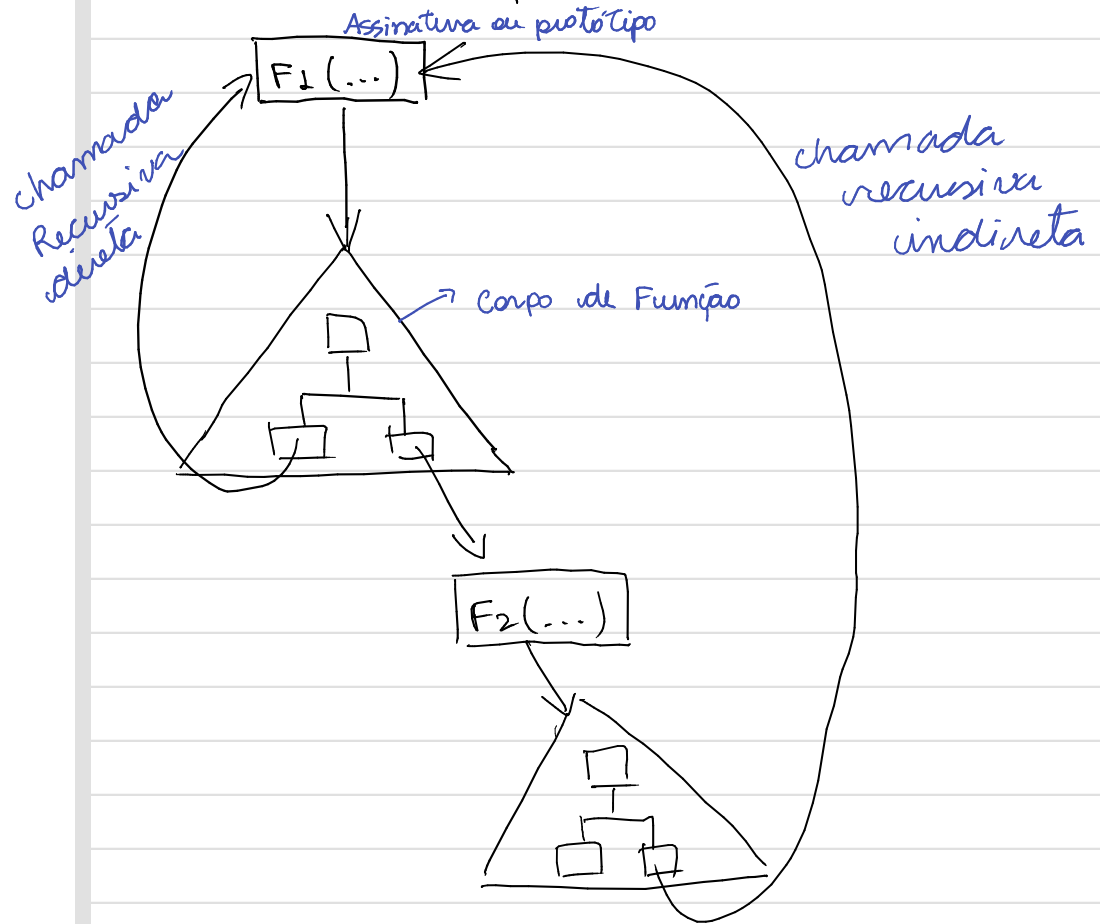 Assinatura ou protótipo
F1(...)
chamada
Recursiva
direta
chamada
recursiva
indireta
Corpo de Função
F2(...)